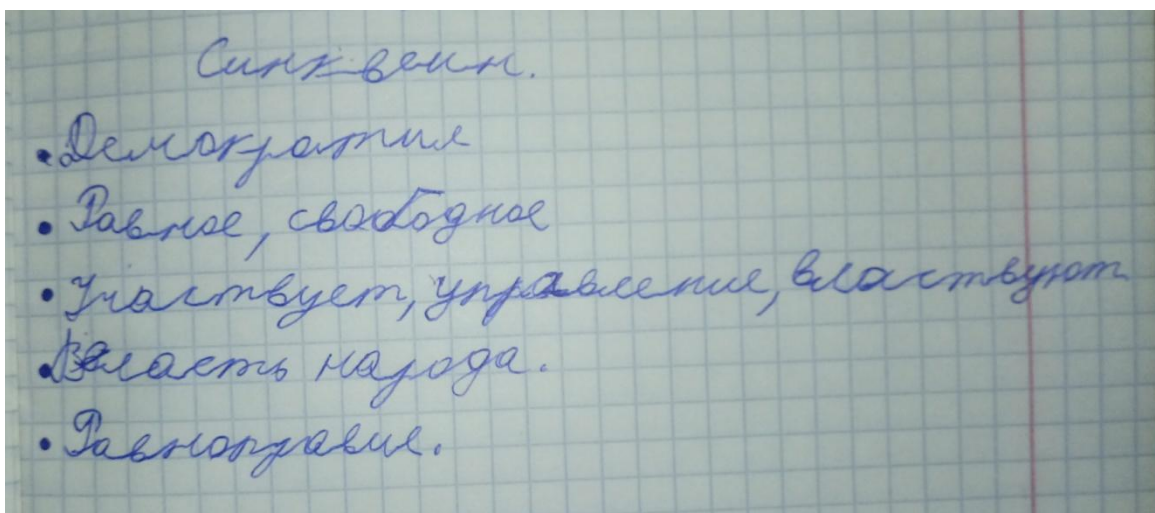 Синквеин.
• Демократия
• Равное, свободное
• Участвует, управление, властвуют
• Власть народа.
• Равноправие.